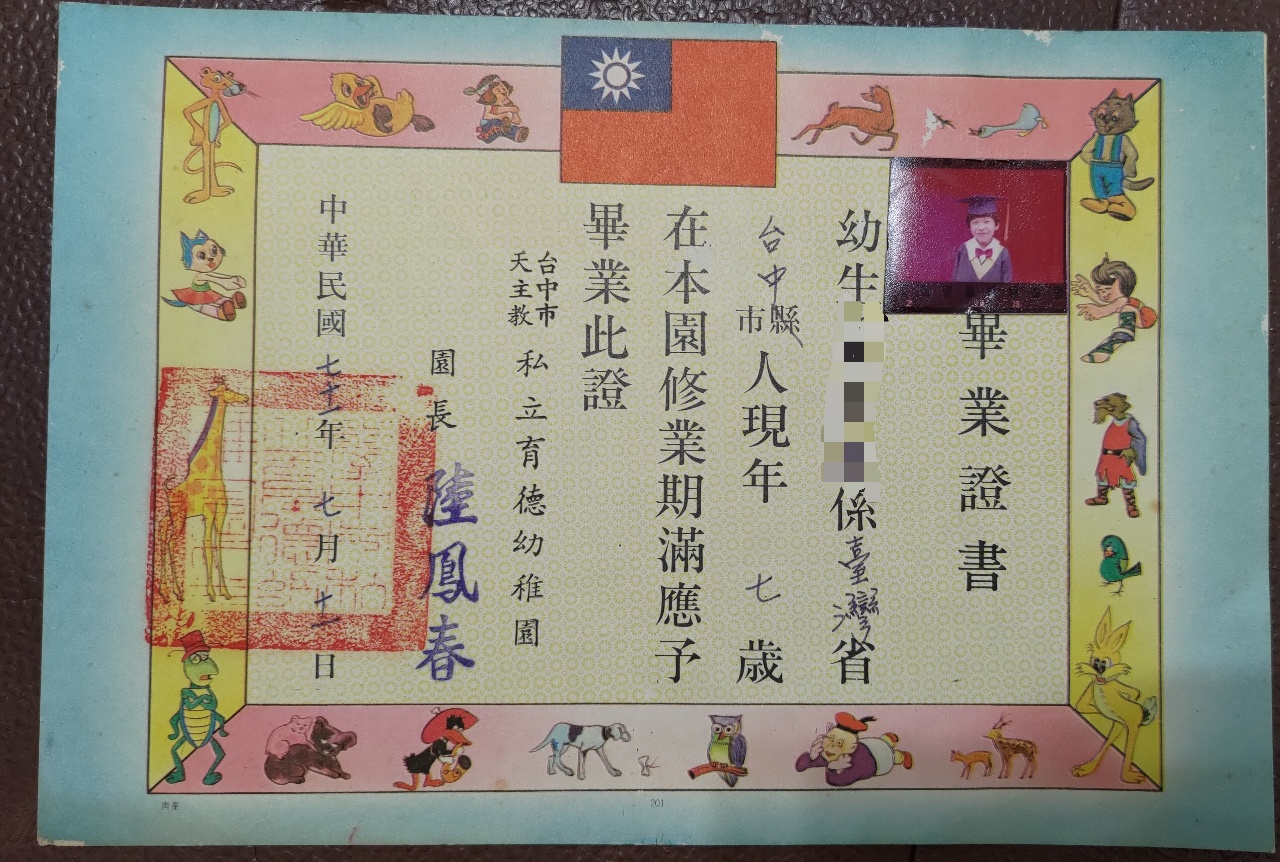 畢業證書
幼生
係臺灣省
台中
縣市
人現年七歲
在本園修業期滿應予
畢業此證
台中市
天主教
私立育德幼稚園
園長 陸鳳春
中華民國七十一年七月十一日
201